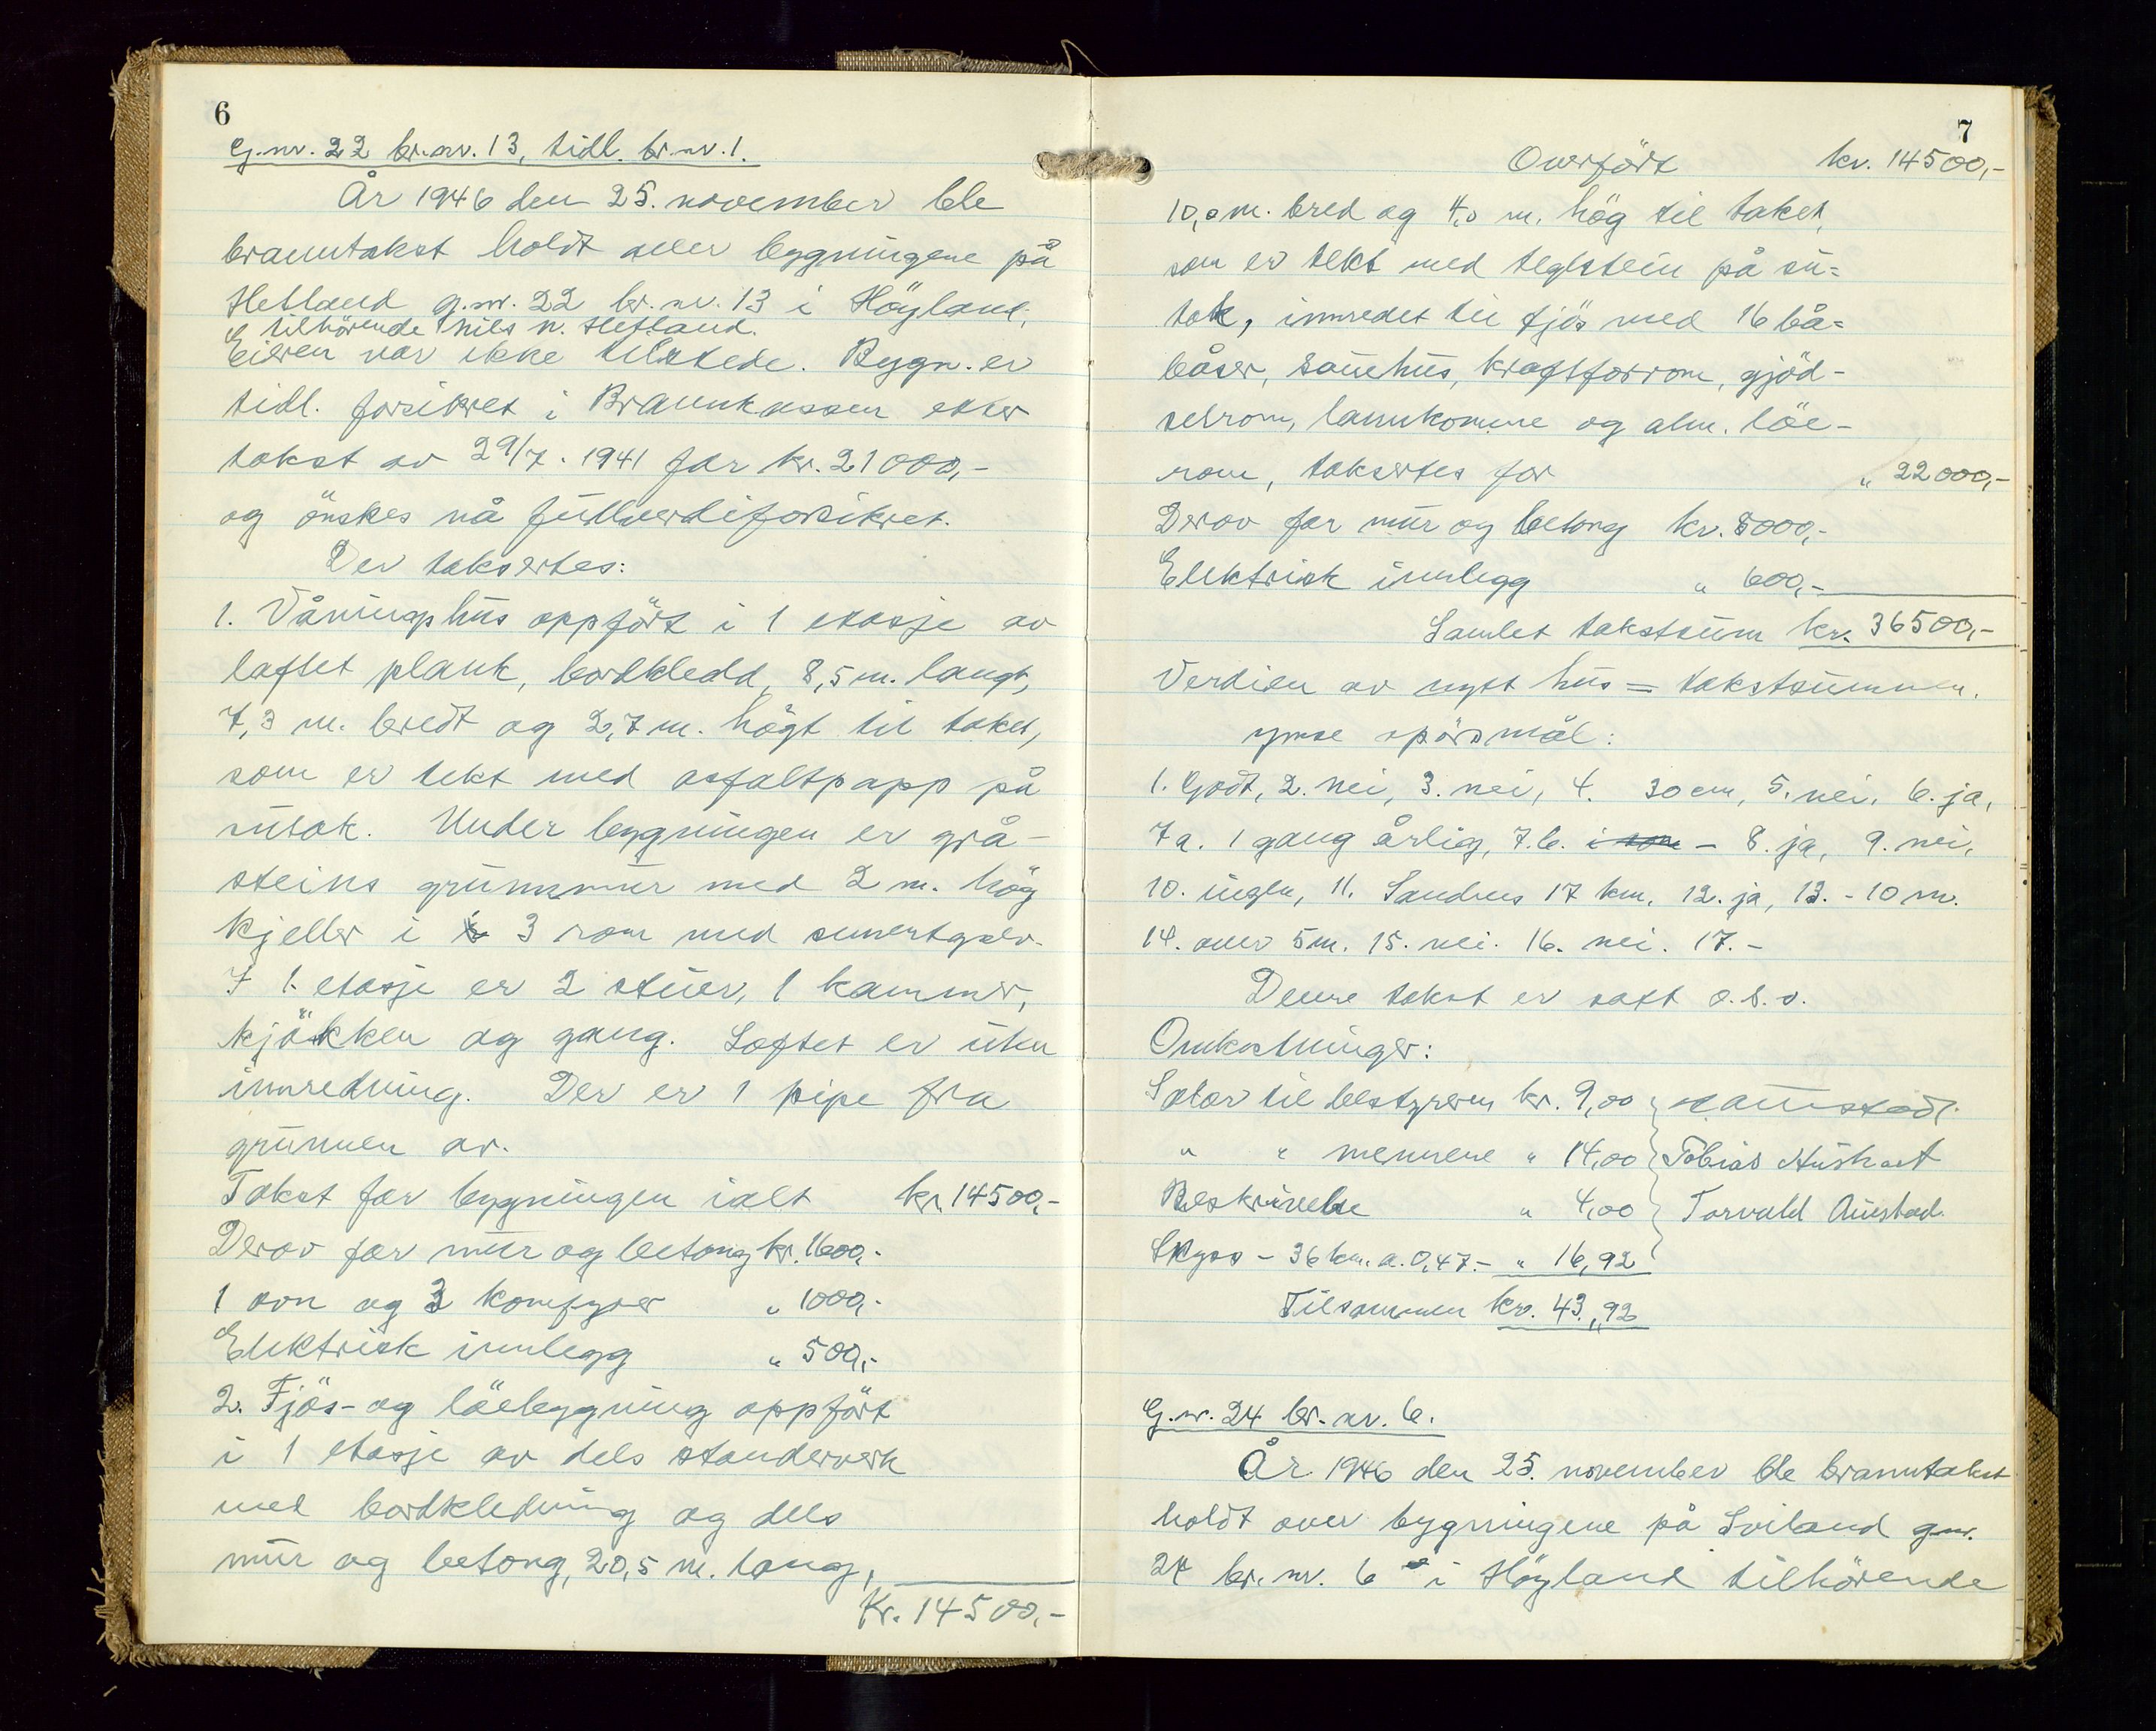 6
G.nr. 22 br.nr. 13, tidl. br.nr. 1.
År 1946 den 25. november ble
branntakst holdt over bygningene på
Hetland g.nr. 22 br.nr. 13 i Höyland,
tilhörende Nils N. Hetland.
Eieren var ikke tilstede. Bygn. er
tidl. forsikret i Brannkassen etter
takst av 29/7. 1941 for kr. 21000,-
og önskes nå fullverdiforsikret.
Der taksertes:
1. Våningshus oppfört i 1 etasje av
laftet plank, bordkledd, 8,5 m. langt,
7,3 m. bredt og 2,7 m. högt til taket,
som er tekt med asfaltpapp på
sutak. Under bygningen er grå-
steins grunnmur med 2 m. hög
kjeller i 3 rom med sementgolv.
I 1. etasje er 2 stuer, 1 kammer,
kjökken og gang. Loftet er uten
innredning. Der er 1 pipe fra
grunnen av.
Takst for bygningen ialt kr. 14500,-
Derav for mur og betong kr. 1600,-
1 ovn og 3 komfyrer " 1000,-
Elektrisk innlegg " 500,-
2. Fjös- og löebygning oppfört
i 1 etasje av dels standerverk
med bordkledning og dels
mur og betong, 20,5 m. lang,
Kr. 14500,-
7
Overfört kr. 14500,-
10,0 m. bred og 4,0 m. hög til taket,
som er tekt med teglstein på su=
tak, innredet til fjös med 16 bå=
båser, sauehus, kraftforrom, gjöd-
selrom, lannkomme og alm. löe-
rom, taksertes for " 22000,-
Derav for mur og betong kr. 8000,-
Elektrisk innlegg " 600,-
Samlet takstsum kr. 36500,-
Verdien av nytt hus = takstsummen.
Ymse spörsmål:
1. Godt, 2. nei, 3. nei, 4. 30 cm, 5. nei, 6. ja,
7a. 1 gang årlig, 7.b. - 8. ja, 9. nei,
10. ingen, 11. Sandnes 17 km. 12. ja, 13. - 10 m.
14. over 5 m. 15. nei. 16. nei. 17. -
Denne takst er satt o.s.v.
Omkostninger:
Salær til bestyreren kr. 9,00
" " mennene " 14,00 Tobias Hushast
Beskrivelse " 4,00 Torvald Austad.
Skyss - 36 km. a. 0,47.- " 16,92
Tilsammen kr. 43,92
G.nr. 24 br.nr. 6.
År 1946 den 25. november ble branntakst
holdt over bygningene på Sviland gnr.
24 br.nr. 6 i Höyland tilhörende